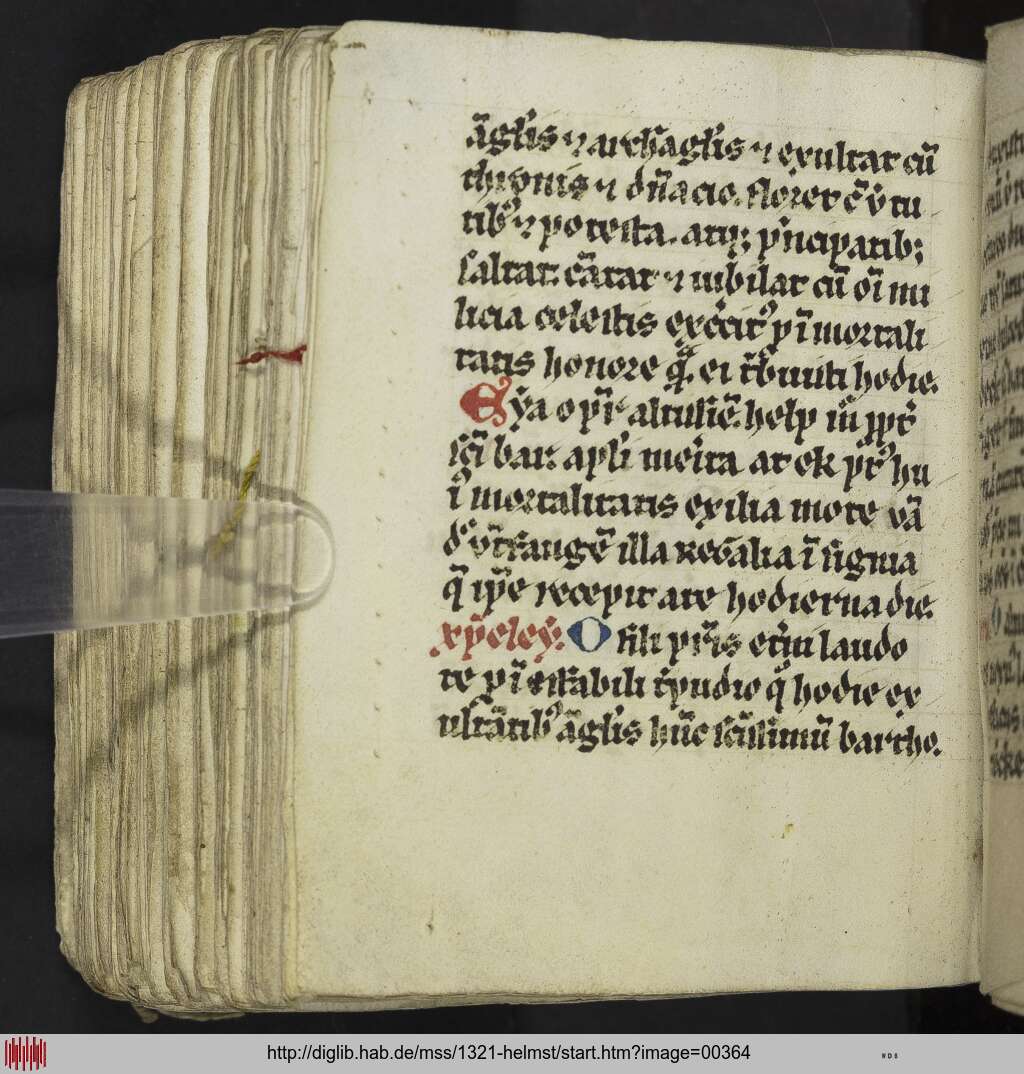 āgl'is ⁊ archāgl'is ⁊ exultat cū
thronis ⁊ dn̄acio. floret cū v̓tu
tib⁹ ⁊ potesta. atq; p̓ncipatib;
saltat: cātat ⁊ iubilat cū oī mi
licia celestis exercit⁹ p īmortali
tatis honore q̄ ei t̓buisti hodie.
Eya o pr̄ altissīe. help
sci bar: apl'i merita at ek
īmortalitatis exilia mote
illa regalia īsignia
q̄ ip̄e recepit ate hodierna die.
xp̄eley. O fili pr̄is et̓ni laudo
te p īestīabili t̓pudio q̓ hodie ex
ultātib⁹ āgl'is hūc scīssimū bartho.
http://diglib.hab.de/mss/1321-helmst/start.htm?image=00364